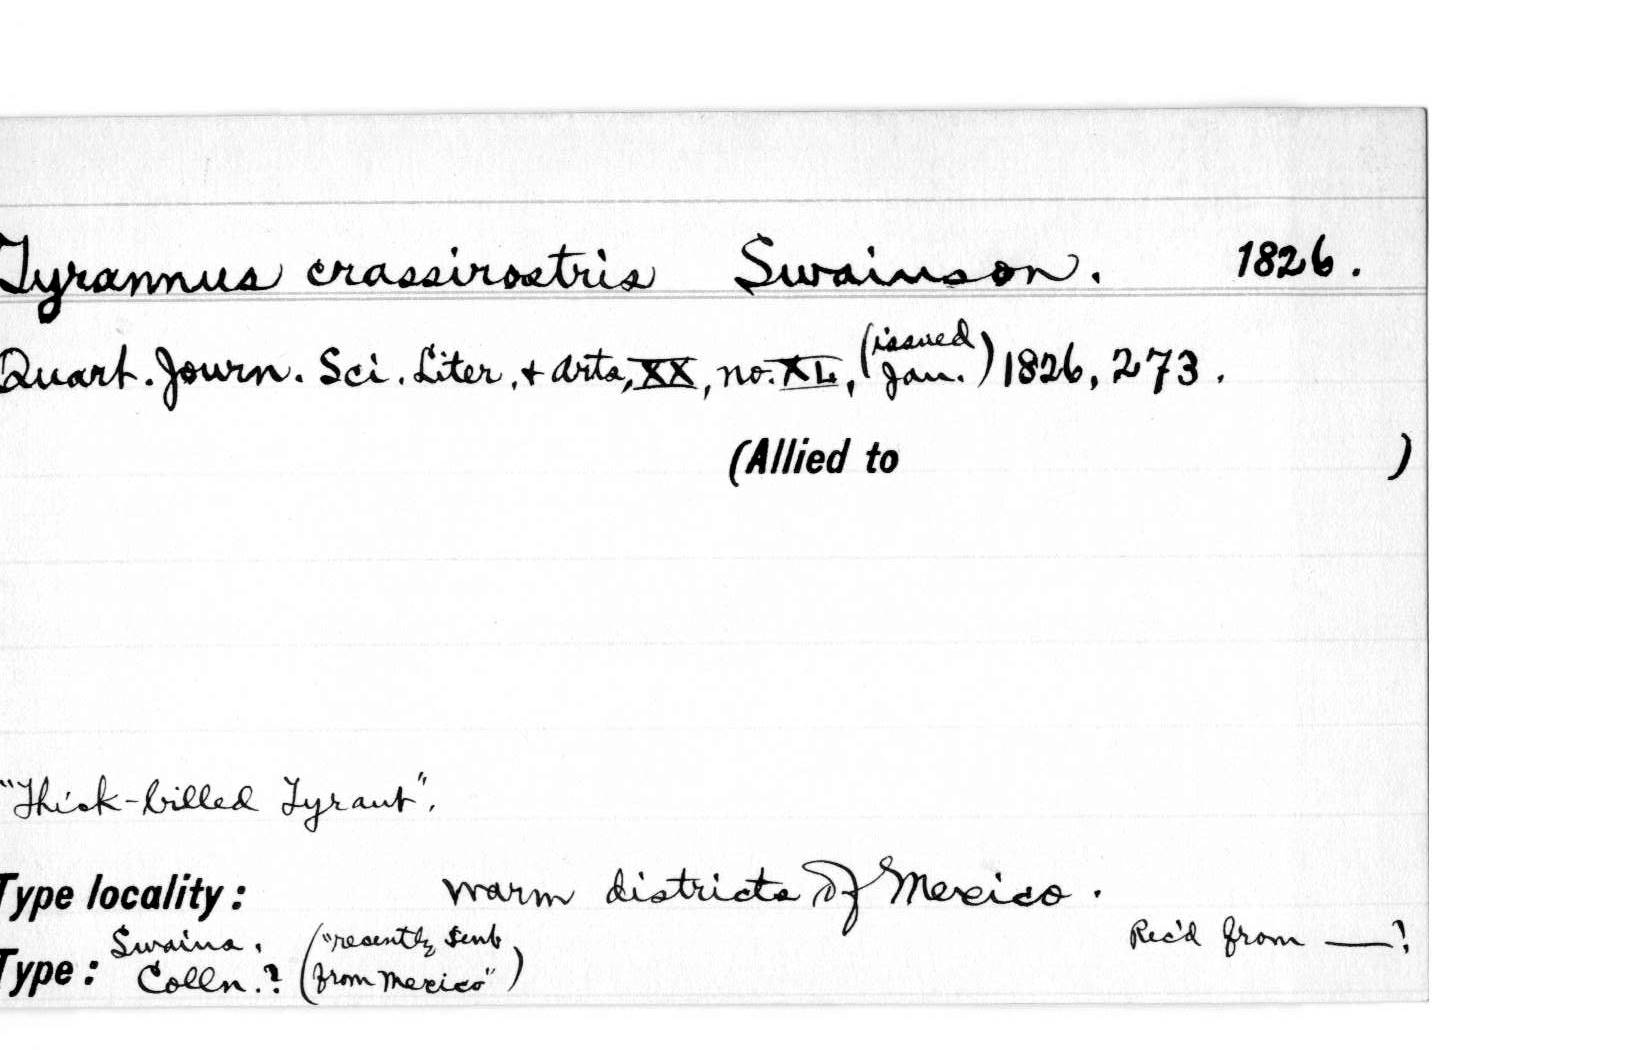 Tyrannus crassirostris Swainson. 1826.
Quart. Journ. Sci. Liter. & Arts, XX, no. XL, (issued Jan.) 1826, 273.
(Allied to )
"Thick-billed Tyrant".
Type locality: warm districts of Mexico.
Type: Swains. Colln.? ("recently sent from Mexico") Rec'd from —?